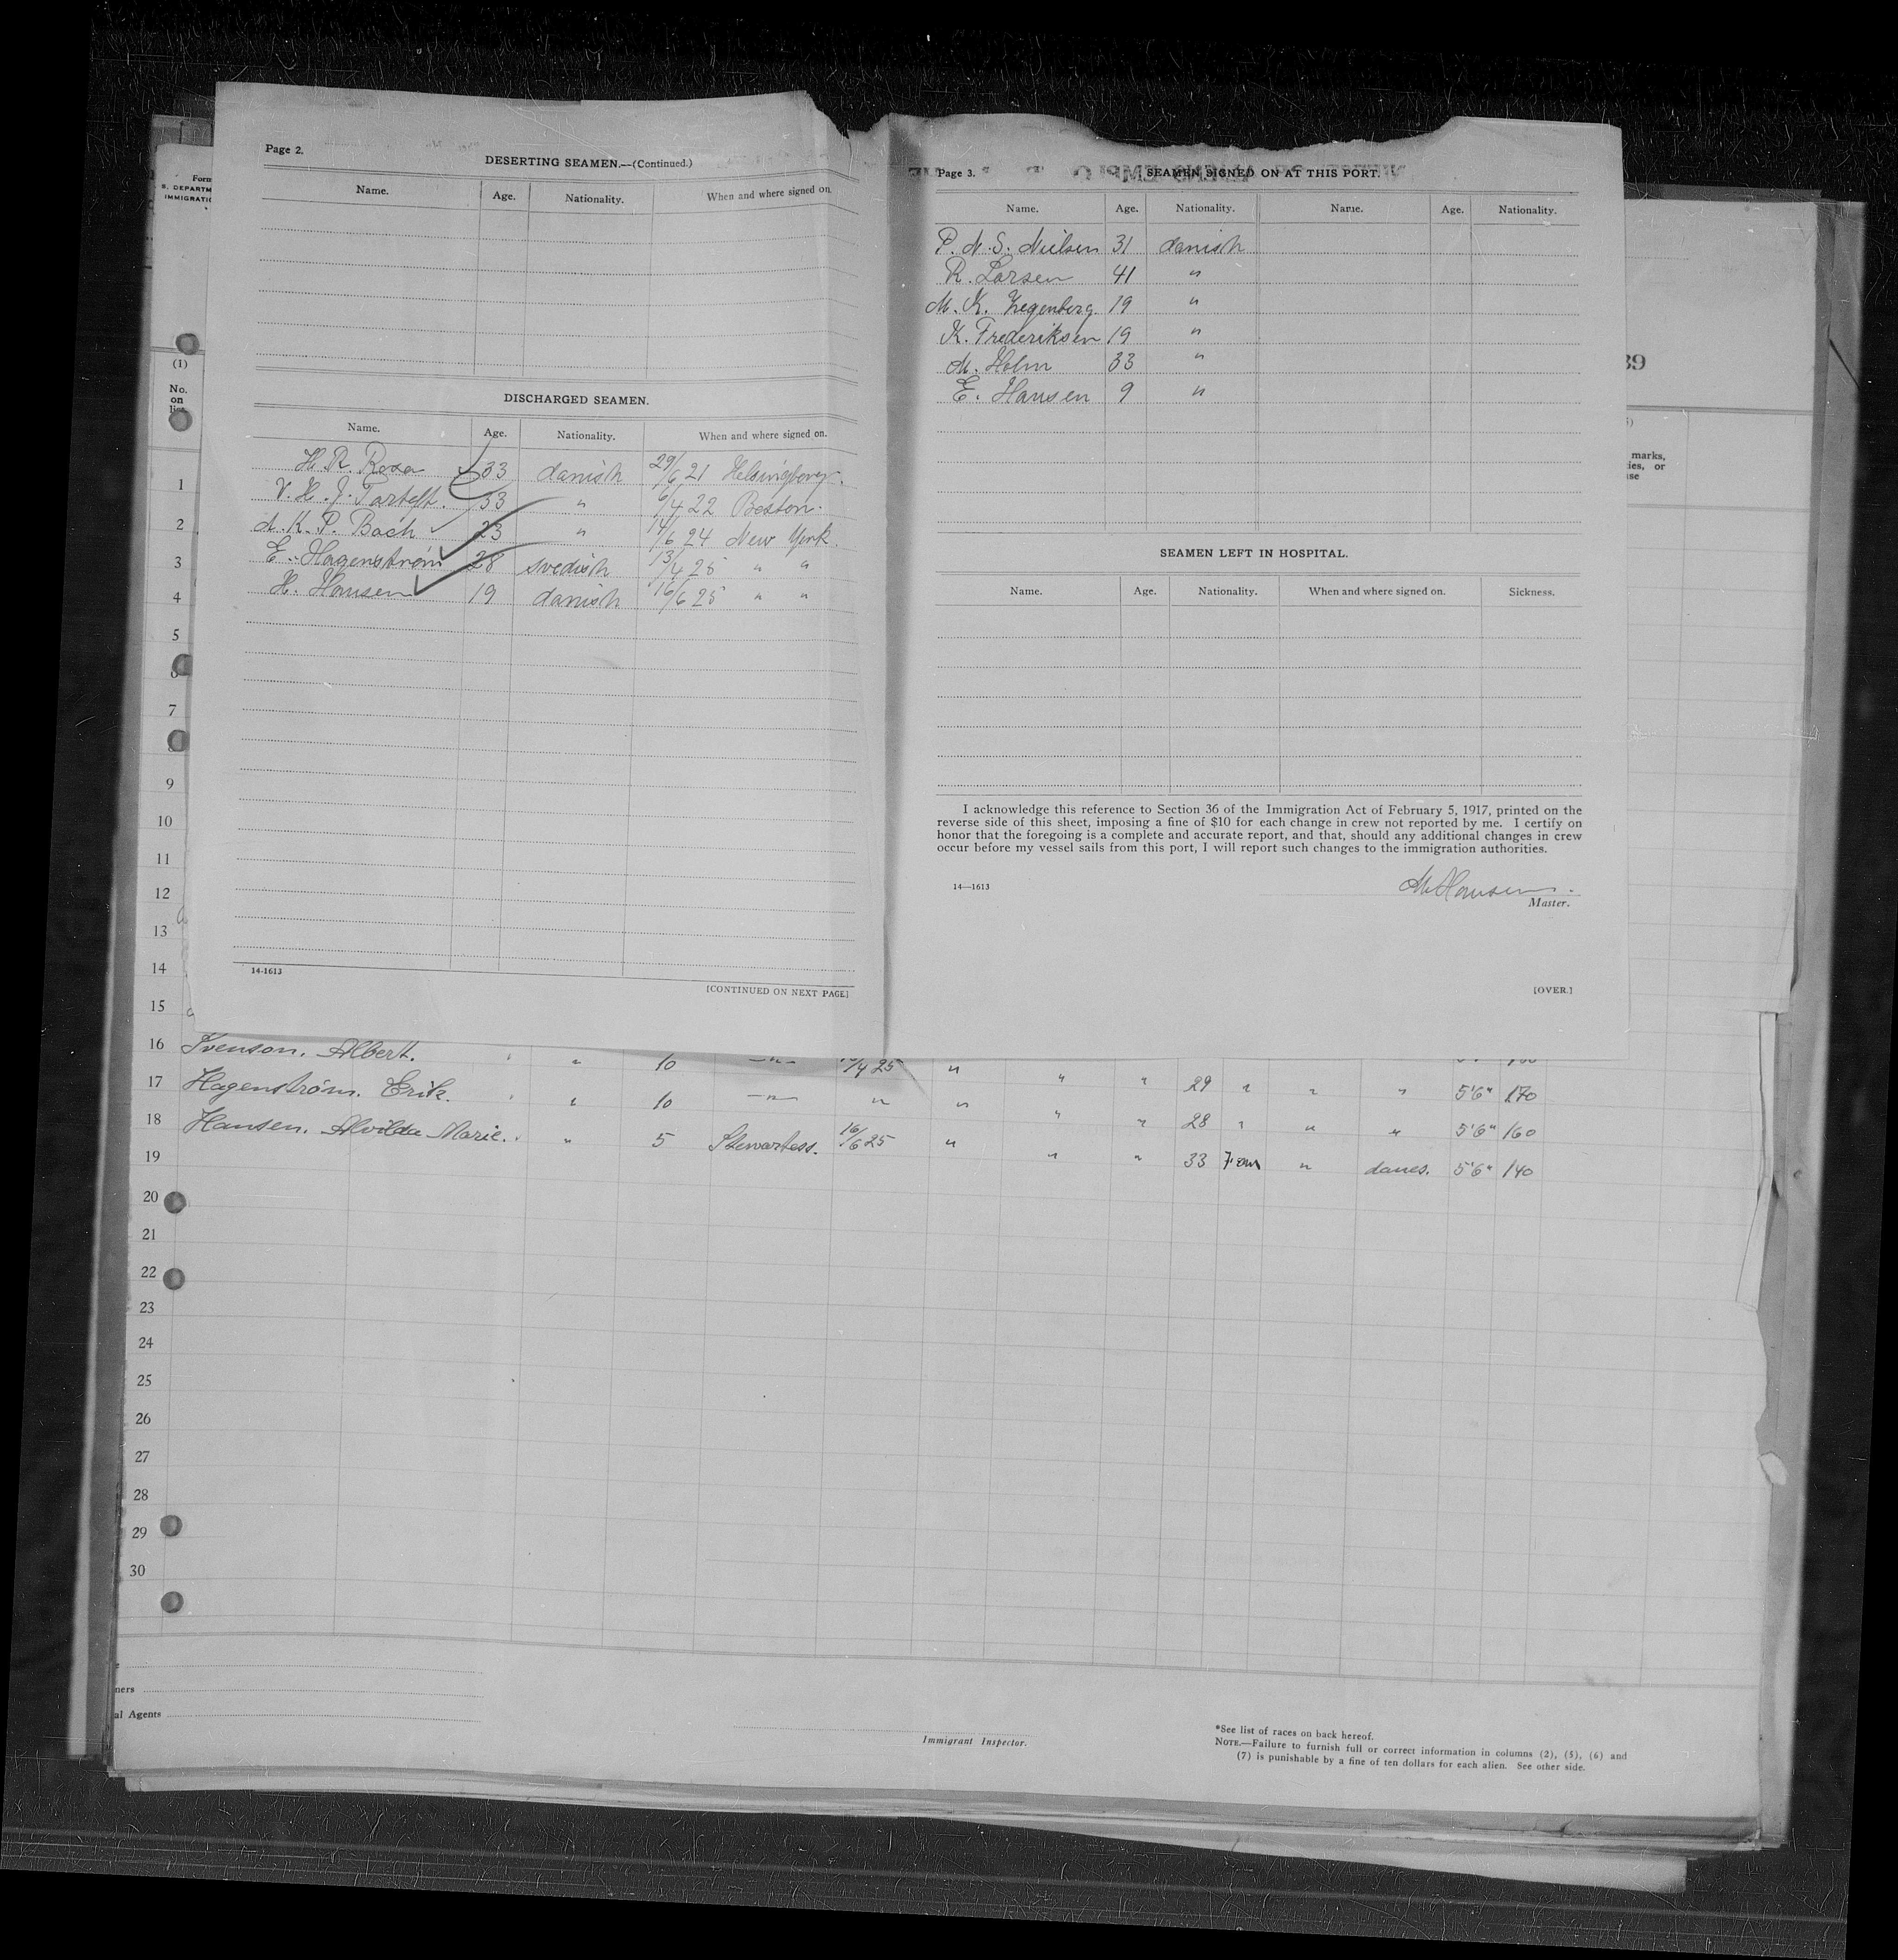 Page 2.
DESERTING SEAMEN.—(Continued.)
Name. Age. Nationality. When and where signed on.
DISCHARGED SEAMEN.
Name. Age. Nationality. When and where signed on.
H. R. 33 danish 29/6 21 Helsingborg.
V. H. J. 33 " 6/4 22 Boston.
K. P. Bach 23 " /6 24 New York.
E. Hagenstrøm 28 swedish 13/4 25 " "
H. Hansen 19 danish 16/6 25 " "
14-1613
[CONTINUED ON NEXT PAGE]
Page 3.
SEAMEN SIGNED ON AT THIS PORT.
Name. Age. Nationality. Name. Age. Nationality.
P. N. S. Nielsen 31 danish
R. Larsen 41 "
M. K. 19 "
K. Frederiksen 19 "
M. Holm 33 "
E. Hansen 9 "
SEAMEN LEFT IN HOSPITAL.
Name. Age. Nationality. When and where signed on. Sickness.
I acknowledge this reference to Section 36 of the Immigration Act of February 5, 1917, printed on the
reverse side of this sheet, imposing a fine of $10 for each change in crew not reported by me. I certify on
honor that the foregoing is a complete and accurate report, and that, should any additional changes in crew
occur before my vessel sails from this port, I will report such changes to the immigration authorities.
14—1613
M Hansen.
Master.
[OVER.]
Form
S. DEPARTM
IMMIGRATIO
(1)
No.
on
list
39
marks,
ies, or
se
1
2
3
4
5
6
7
8
9
10
11
12
13
14
15
16 Svenson. Albert. " 10 —"— /4 25 " " " 29 " " " 5'6" 170
17 Hagenstrøm. Erik. " 10 —"— " " " " 28 " " " 5'6" 160
18 Hansen. Alvilda Marie. " 5 Stewartess. 16/6 25 " " " 33 Fem " danes. 5'6" 140
19
20
21
22
23
24
25
26
27
28
29
30
ners
al Agents
Immigrant Inspector.
*See list of races on back hereof.
NOTE.—Failure to furnish full or correct information in columns (2), (5), (6) and
(7) is punishable by a fine of ten dollars for each alien. See other side.